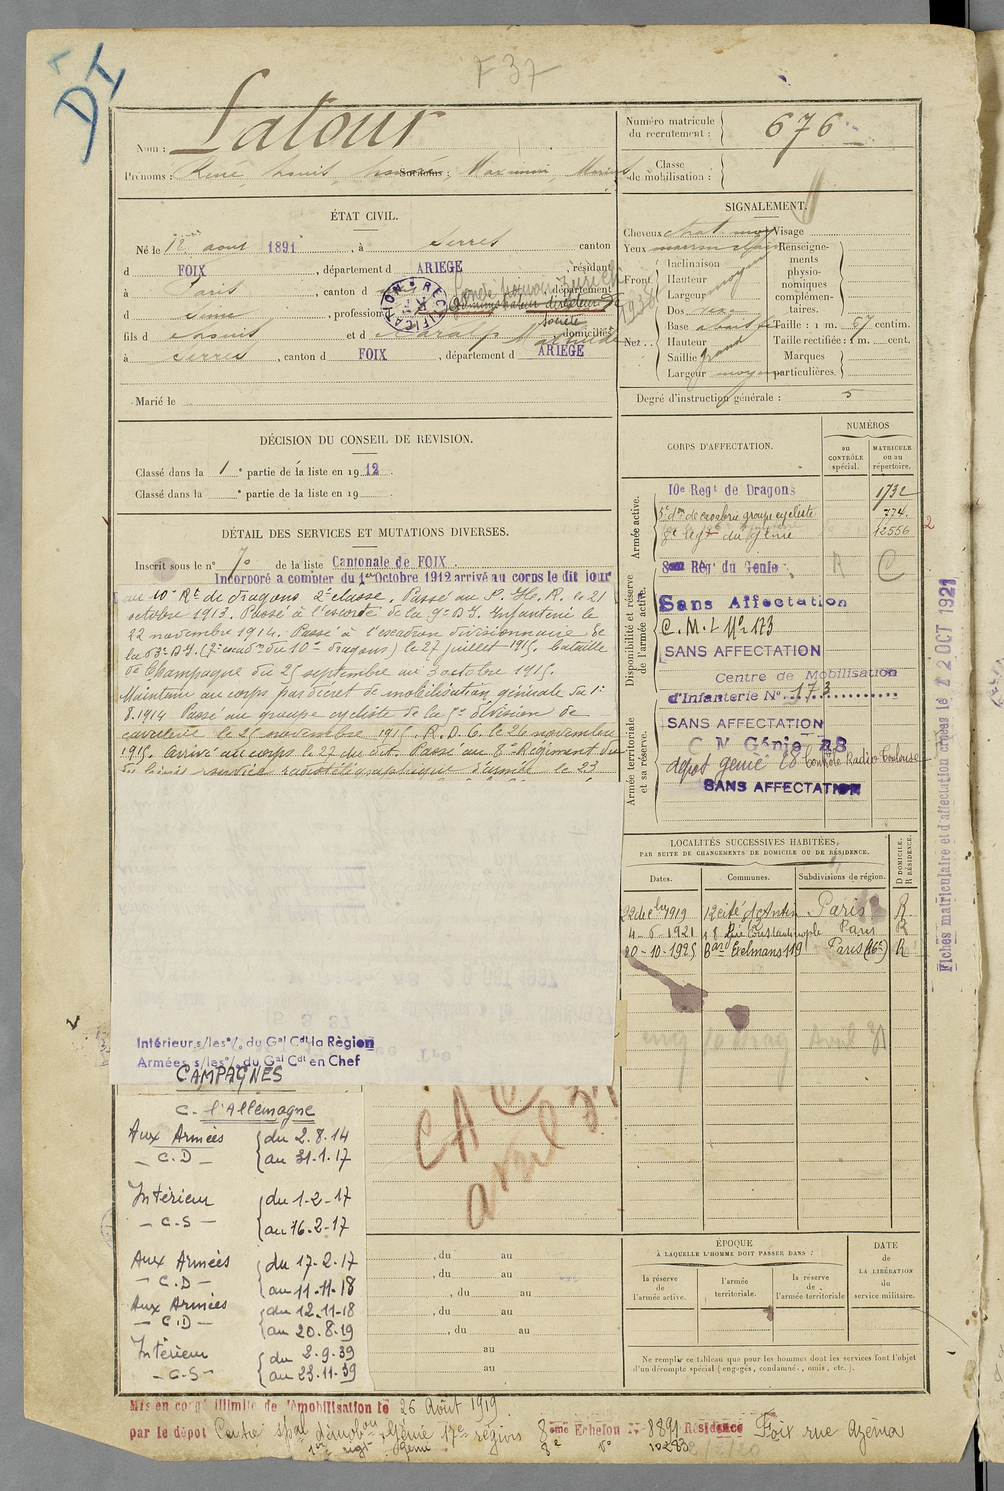 F 37
DI
Nom : Latour
Prénoms : René, Louis, Surnoms : Maximin, Marius
Numéro matricule du recrutement : 676
Classe de mobilisation :
ÉTAT CIVIL.
Né le 12 août 1891, à Serres canton
d FOIX, département d ARIEGE, résidant
à Paris, canton d département
d Seine, profession d
RECTIFICATION
Administrateur directeur de Société
fils d Louis et d Caralp Mathilde domiciliés
à Serres, canton d FOIX, département d ARIEGE
Marié le
SIGNALEMENT.
Cheveux chat moy Visage
Yeux marron clair Renseigne-
ments
physio-
nomiques
complémen-
taires.
Front Inclinaison
Hauteur moyen
Largeur
Nez Dos rec.
Base
Hauteur
Saillie grand
Largeur moyen
Taille : 1 m. 67 centim.
Taille rectifiée : 1 m. cent.
Marques
particulières.
Degré d'instruction générale : 5
DÉCISION DU CONSEIL DE REVISION.
Classé dans la 1e partie de la liste en 1912.
Classé dans la e partie de la liste en 19
DÉTAIL DES SERVICES ET MUTATIONS DIVERSES.
Inscrit sous le n° 70 de la liste Cantonale de FOIX.
Incorporé a compter du 1er Octobre 1912 arrivé au corps le dit jour
au 10e Rt de dragons 2e classe. Passé au P. H. R. le 21
octobre 1913. Passé à l'escorte de la 9e D.I. Infanterie le
22 novembre 1914. Passé à l'escadron divisionnaire de
la 63e D.I. (2e escadron du 10e dragons) le 27 juillet 1915. Bataille
de Champagne du 25 septembre au 3 octobre 1915.
Maintenu au corps par décret de mobilisation générale du 1er
8.1914 Passé au groupe cycliste de la 5e division de
cavalerie le 25 novembre 1915. R.D.C. le 26 novembre
1915. Arrivé au corps le 27 du dit. Passé au 8e Régiment du
Génie service radiotélégraphique d'armée le 23
CORPS D'AFFECTATION.
NUMÉROS
au CONTRÔLE spécial.
MATRICULE ou au répertoire.
Armée active.
10e Regt de Dragons 1732
5e don de cavalerie groupe cycliste 774
8e Regt du Génie 12556
Disponibilité et réserve de l'armée active.
8em Règt du Genie R C
Sans Affectation
C. M. I No 173
SANS AFFECTATION
Centre de Mobilisation
d'Infanterie No 173
Armée territoriale et sa réserve.
SANS AFFECTATION
C M Génie 28
dépot génie 28 Contrôle Radio Toulouse
SANS AFFECTATION
Fiches matriculaire et d'affectation créées le 22 OCT 1921
LOCALITÉS SUCCESSIVES HABITÉES,
PAR SUITE DE CHANGEMENTS DE DOMICILE OU DE RÉSIDENCE.
Dates. Communes. Subdivisions de région. D DOMICILE. R RÉSIDENCE.
22 décbre 1919 12 cité d'Antin Paris R
4-6-1921 18 Rue Constantinople Paris R
20-10-1925 Bard Exelmans 119 Paris (16e) R
Intérieur s/les o/ du Gal Cdt la Région
Armées s/les o/ du Gal Cdt en Chef
CAMPAGNES
C. l'Allemagne
Aux Armées du 2.8.14
- C.D - au 31.1.17
Intérieur du 1-2-17
- C-S - au 16-2-17
Aux Armées du 17-2-17
- C.D - au 11-11-18
Aux Armées du 12.11-18
- C.D - au 20.8.19
Intérieur du 2-9-39
- C-S - au 23-11-39
CAC
avril 31
, du au
, du au
, du au
, du au
, du au
au
au
ÉPOQUE
À LAQUELLE L'HOMME DOIT PASSER DANS :
la réserve de l'armée active.
l'armée territoriale.
la réserve de l'armée territoriale
DATE de LA LIBÉRATION du service militaire.
Ne remplir ce tableau que pour les hommes dont les services font l'objet
d'un décompte spécial (engagés, condamné, omis, etc.).
Mis en congé illimité de démobilisation le 26 Août 1919.
par le dépot Centre spal démobon Génie 17e région 8eme Echelon No 8891 Résidence Foix rue Azéma
1er regt Génie 8e 10283